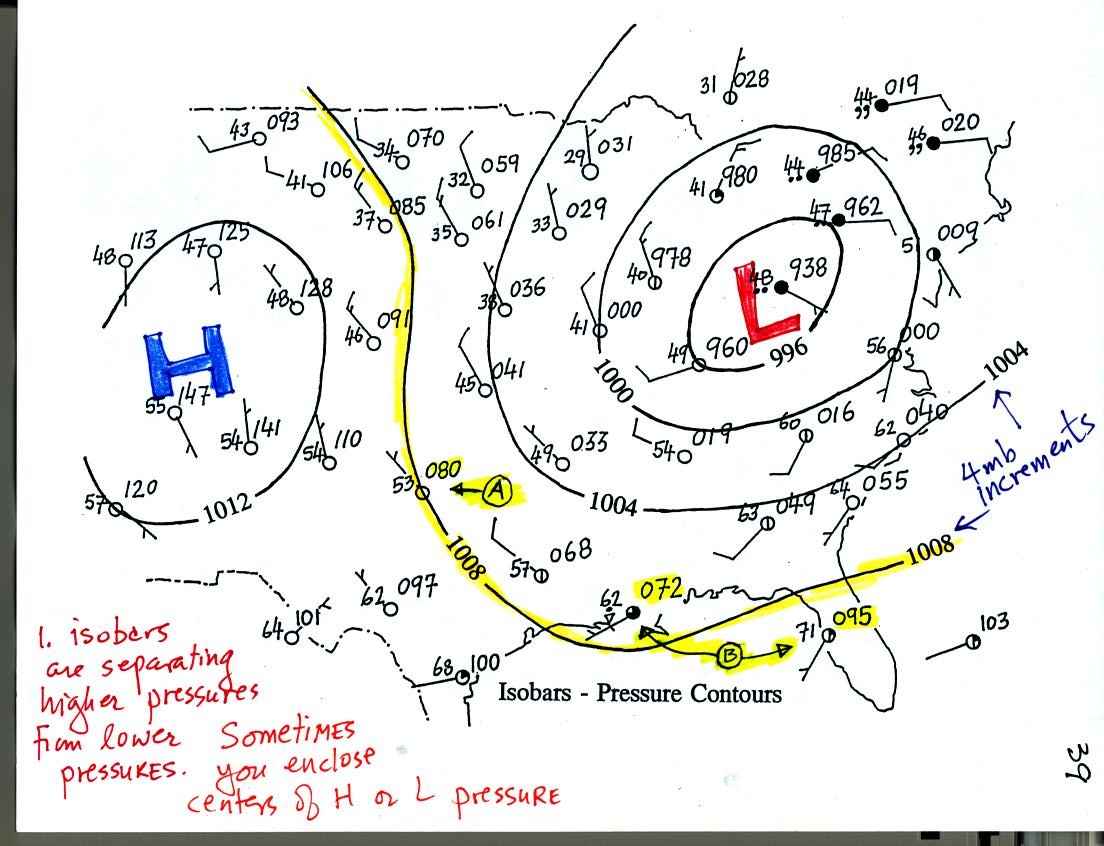 31 028
44 019
46 020
43 093
34 070
29 031
44 985
106
41
32 059
41 980
37 085
47 962
35 061
33 029
009
48 113
47 125
40 978
48 938
48 128
38 036
L
091
46
41 000
000
H
49 960
996
56
1004
45 041
1000
55 147
54 141
54 110
49 033
54 019
60 016
62 040
4mb
increments
53 080
A
57 120
1012
1004
63 049
64 055
1008
57 068
1008
62 097
62 072
64 101
71 095
B
103
68 100
Isobars - Pressure Contours
1. isobars
are separating
higher pressures
from lower
pressures.
Sometimes
you enclose
centers of H or L pressure
39